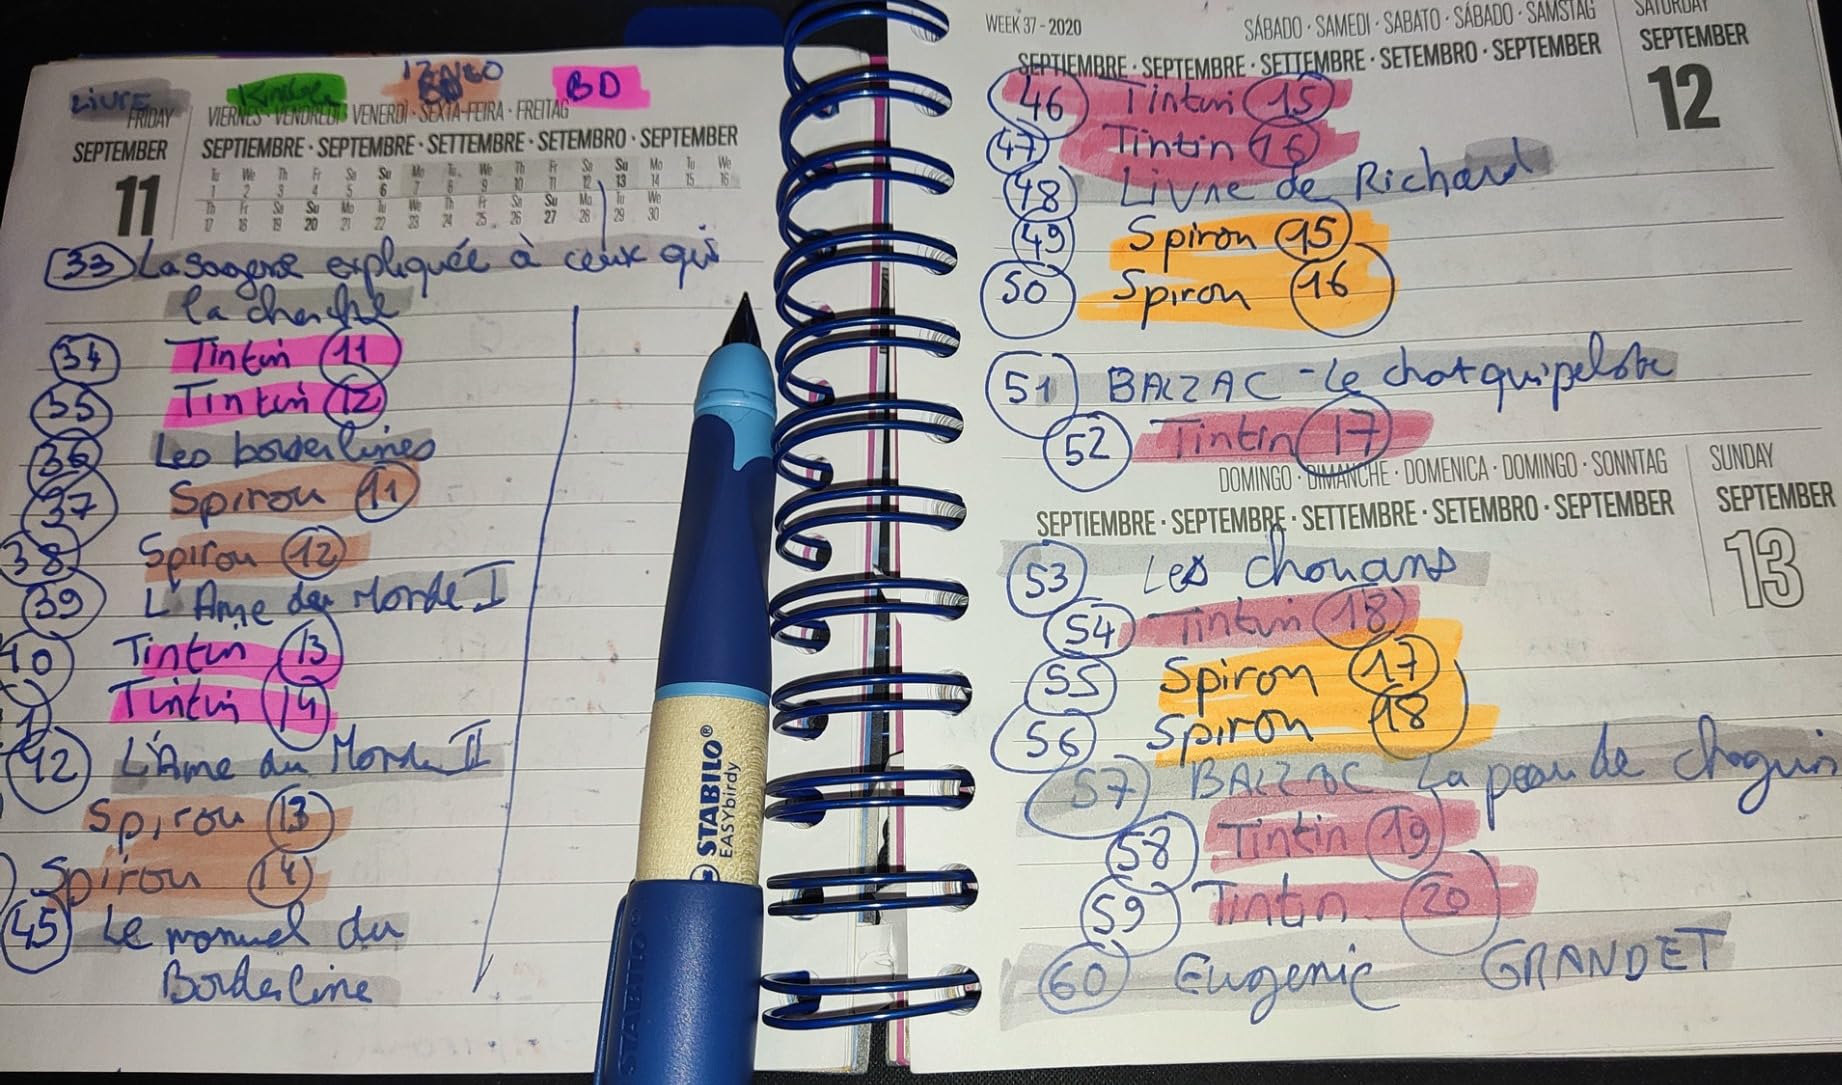 LIVRE Kindle IZNEO BD
FRIDAY
VIERNES · VENDREDI · VENERDI · SEXTA-FEIRA · FREITAG
SEPTEMBER
SEPTIEMBRE · SEPTEMBRE · SETTEMBRE · SETEMBRO · SEPTEMBER
11
Tu We Th Fr Sa Su Mo Tu We Th Fr Sa Su Mo Tu We
1 2 3 4 5 6 7 8 9 10 11 12 13 14 15 16
Th Fr Sa Su Mo Tu We Th Fr Sa Su Mo Tu We
17 18 19 20 21 22 23 24 25 26 27 28 29 30
33 La sagesse expliquée à ceux qui
la cherche
34 Tintin 11
35 Tintin 12
36 Les borderlines
37 Spirou 11
38 Spirou 12
39 L'Ame du Monde I
40 Tintin 13
1 Tintin 14
42 L'Ame du Monde II
Spirou 13
Spirou 14
45 Le manuel du
Borderline
STABILO®
EASYbirdy
STABILO®
WEEK 37 - 2020
SÁBADO · SAMEDI · SABATO · SÁBADO · SAMSTAG
SATURDAY
SEPTIEMBRE · SEPTEMBRE · SETTEMBRE · SETEMBRO · SEPTEMBER
SEPTEMBER
12
46 Tintin 15
47 Tintin 16
48 Livre de Richard
49 Spirou 15
50 Spirou 16
51 BALZAC - Le chat qui pelote
52 Tintin 17
DOMINGO · DIMANCHE · DOMENICA · DOMINGO · SONNTAG
SUNDAY
SEPTIEMBRE · SEPTEMBRE · SETTEMBRE · SETEMBRO · SEPTEMBER
SEPTEMBER
13
53 Les chouans
54 Tintin 18
55 Spirou 17
56 Spirou 18
57 BALZAC La peau de chagrin
58 Tintin 19
59 Tintin 20
60 Eugenie GRANDET